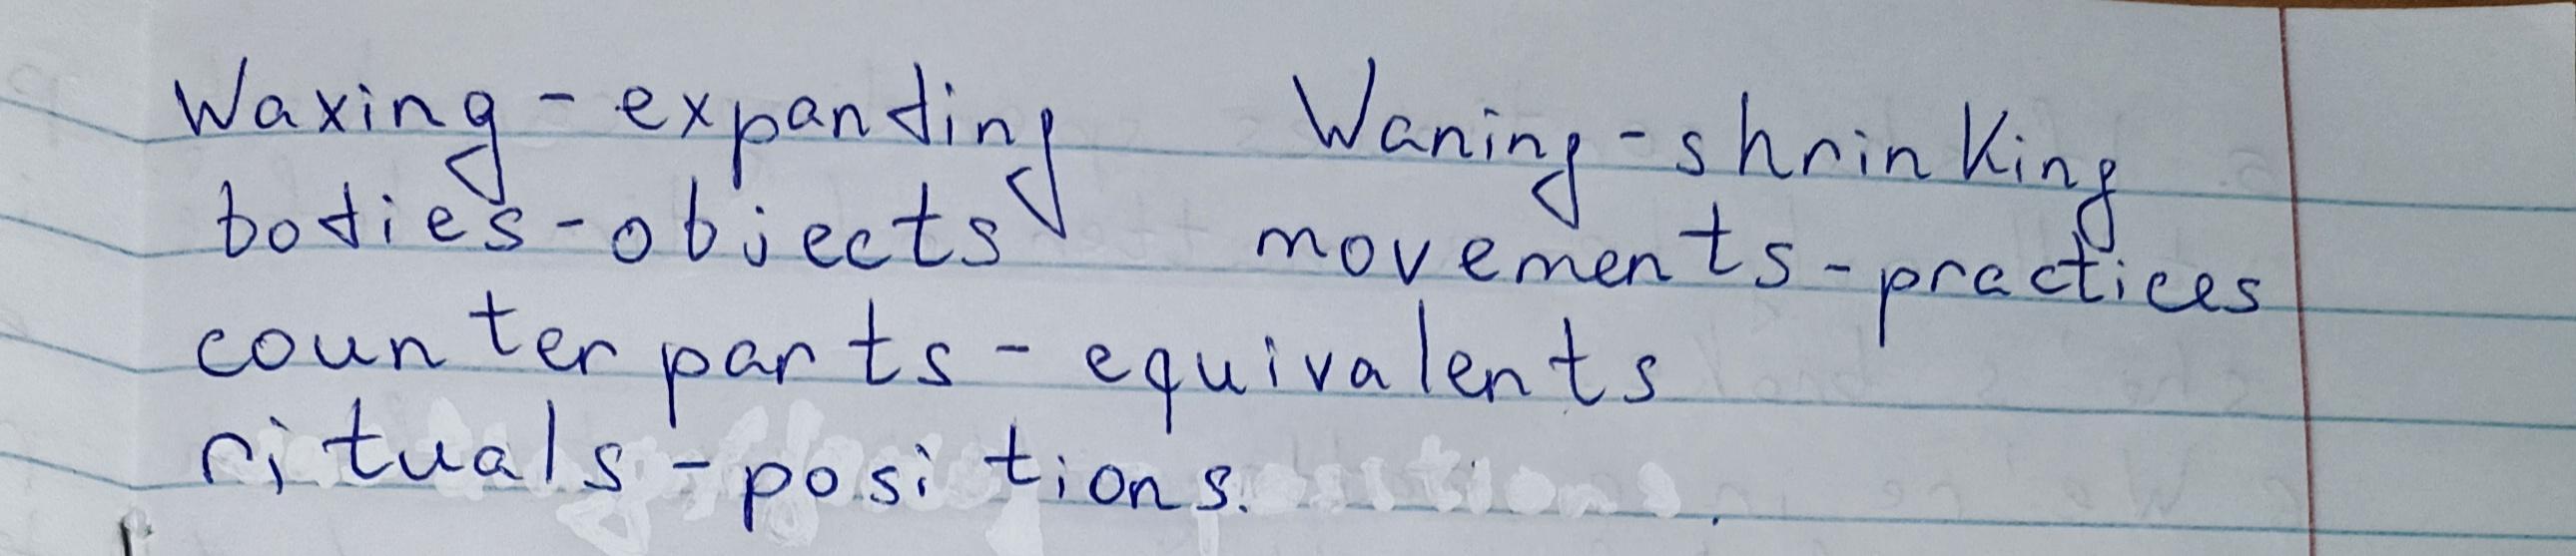 Waxing - expanding Waning - shrinking
bodies - objects movements - practices
counterparts - equivalents
rituals - positions.